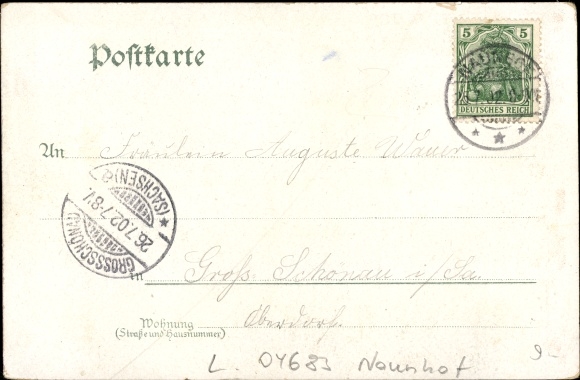 Postkarte
5 5
DEUTSCHES REICH
An Fräulein Auguste
(SACHSEN)
26.7.02.7-8V.
GROSSSCHÖNAU
in Groß-Schönau i/Sa.
Wohnung Oberdorf.
(Straße und Hausnummer)
L. 04683 Naunhof